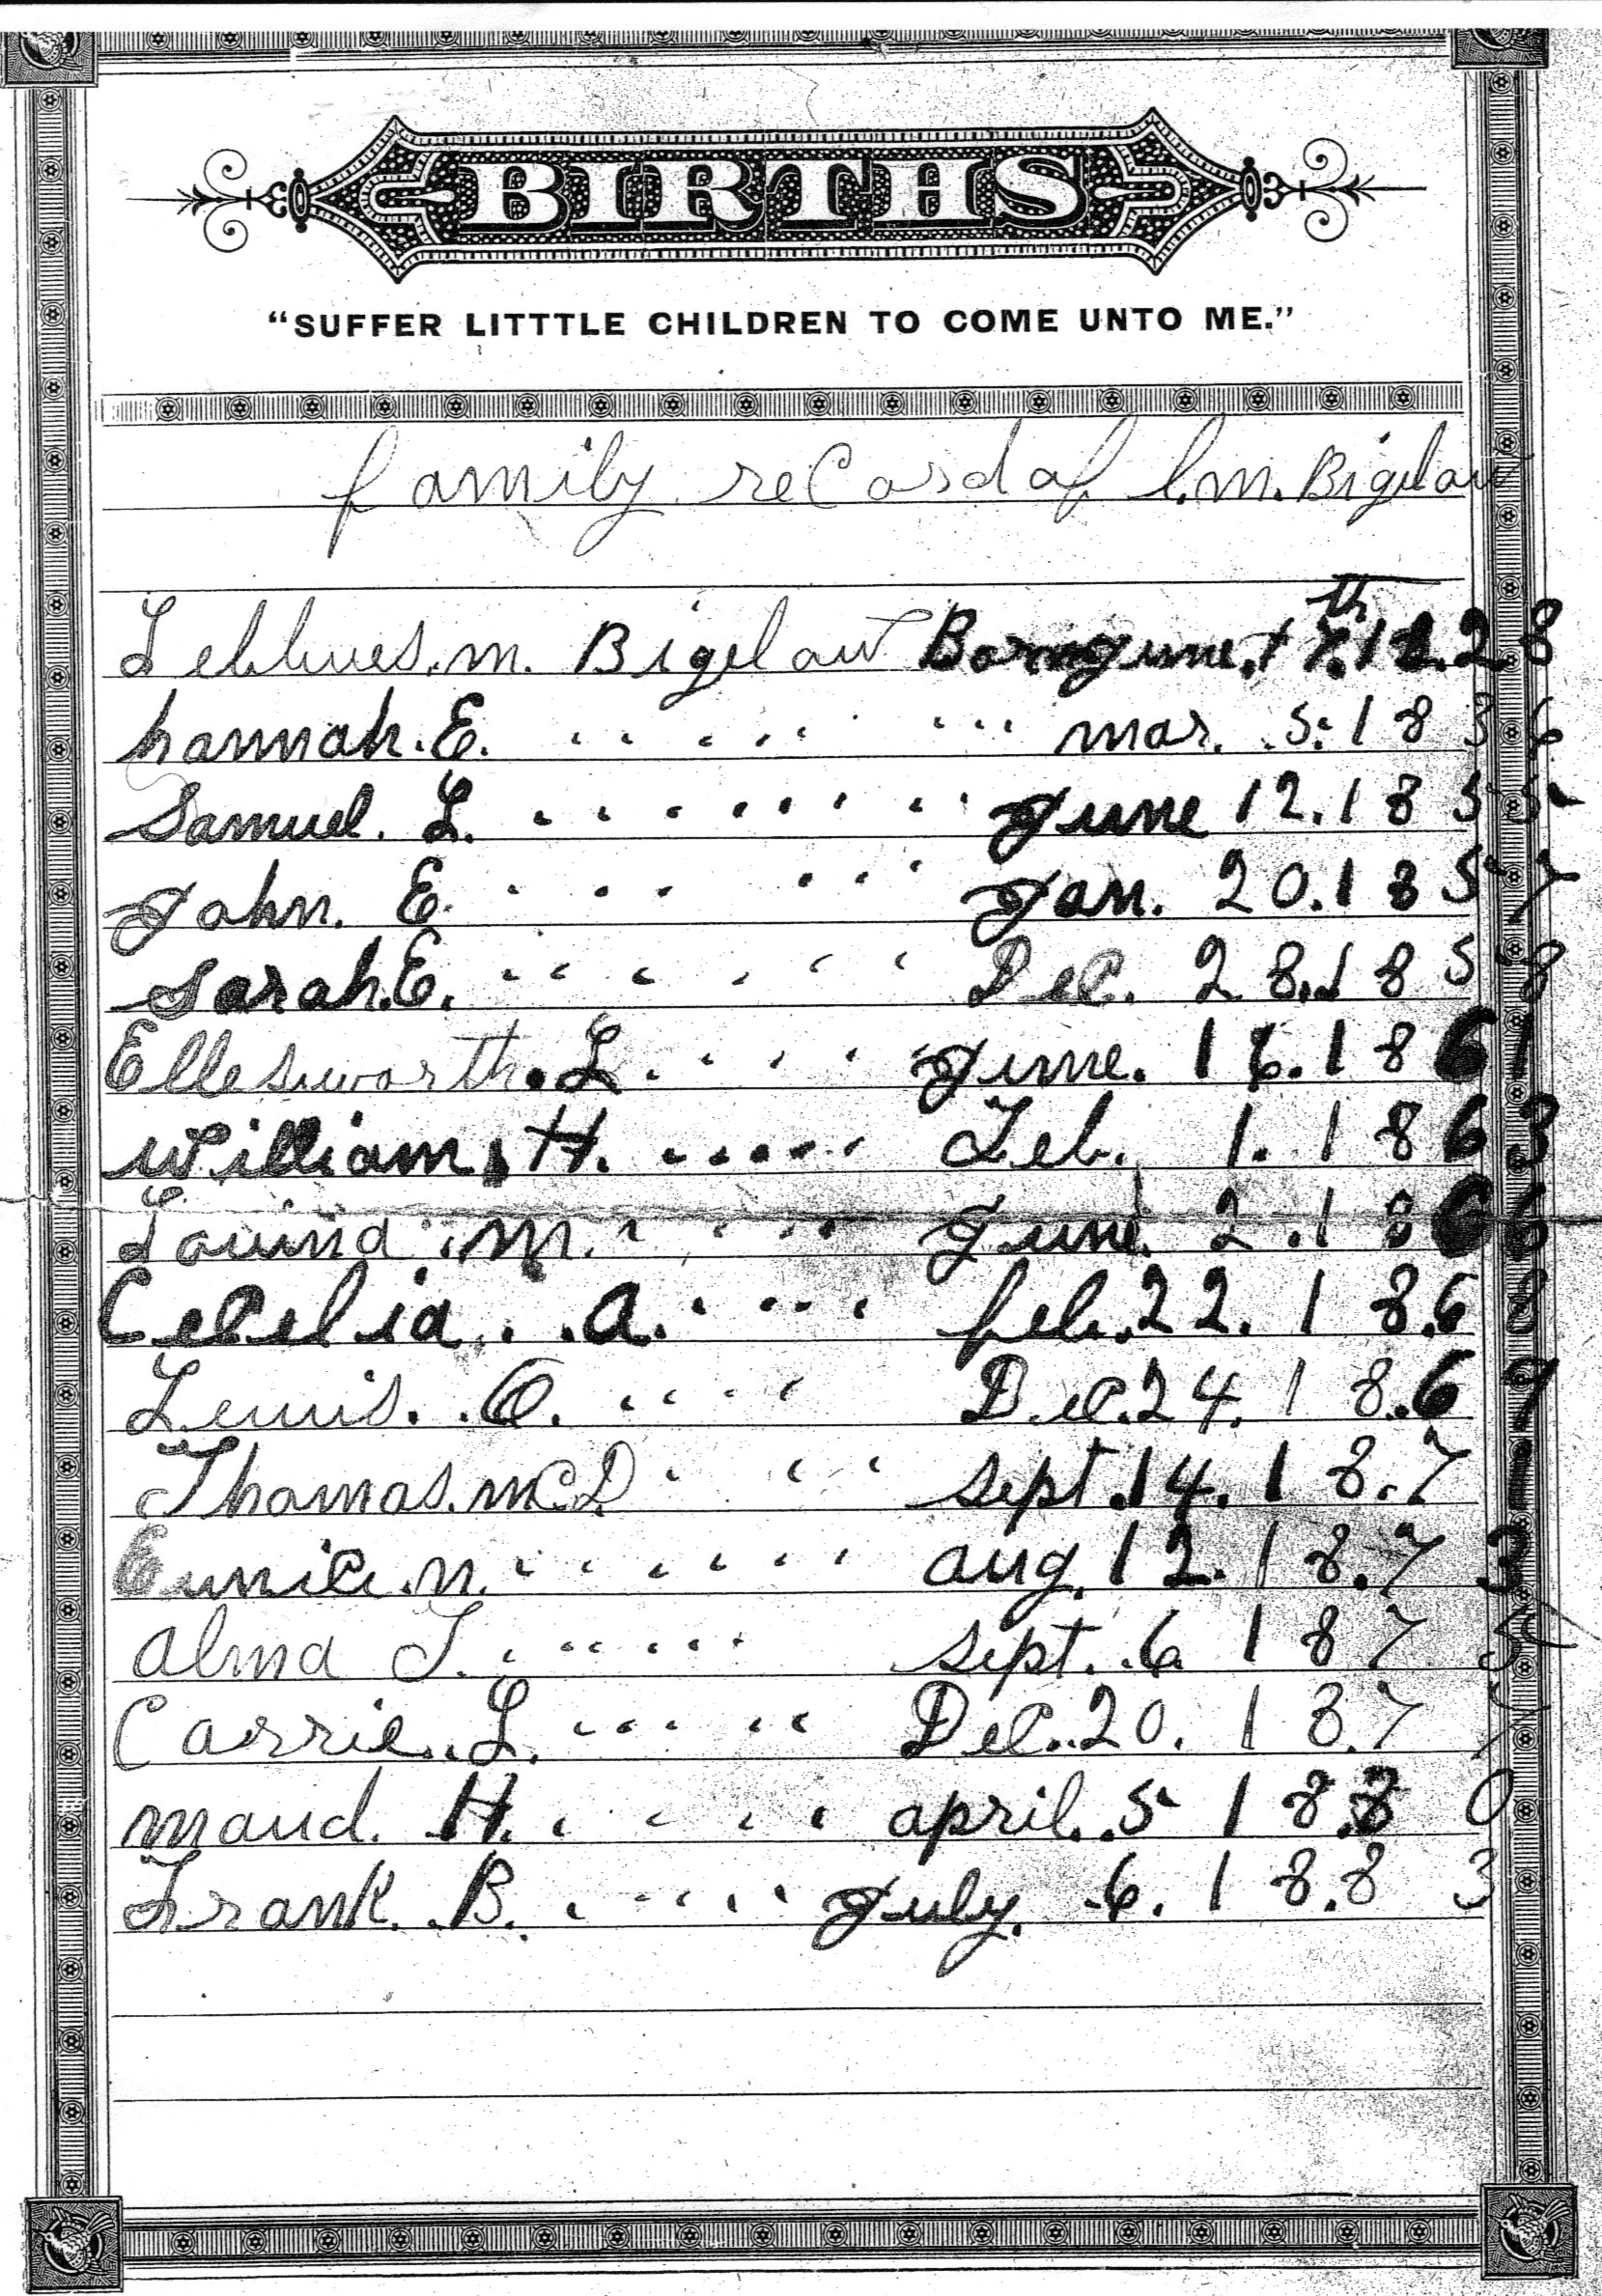 BIRTHS
"SUFFER LITTTLE CHILDREN TO COME UNTO ME."
family record of l.m. Bigelow
m. Bigelow Born June. 17th. 1828
hannah. E. " " " " " " mar. 5. 1836
Samuel. L. " " " " June 12. 1855
John. E. " " " Jan. 20. 1857
Sarah. E. " " " " Dec. 28. 1858
Ellesworth. L. " " " June. 16. 1861
William, H. " " " Feb. 1. 1863
Lovina. m. " " " June. 2. 1866
Cecelia. A. " " " feb. 22. 1868
Lewis. O. " " " Dec. 24. 1869
Thomas. mC.D " " " sept. 14. 1871
Eunice. n. " " " " aug. 12. 1873
alma T. " " " sept. 6 1875
Carrie. L. " " " Dec. 20. 187
maud. H. " " " april. 5 1880
Frank. B. " " " July. 6. 1883